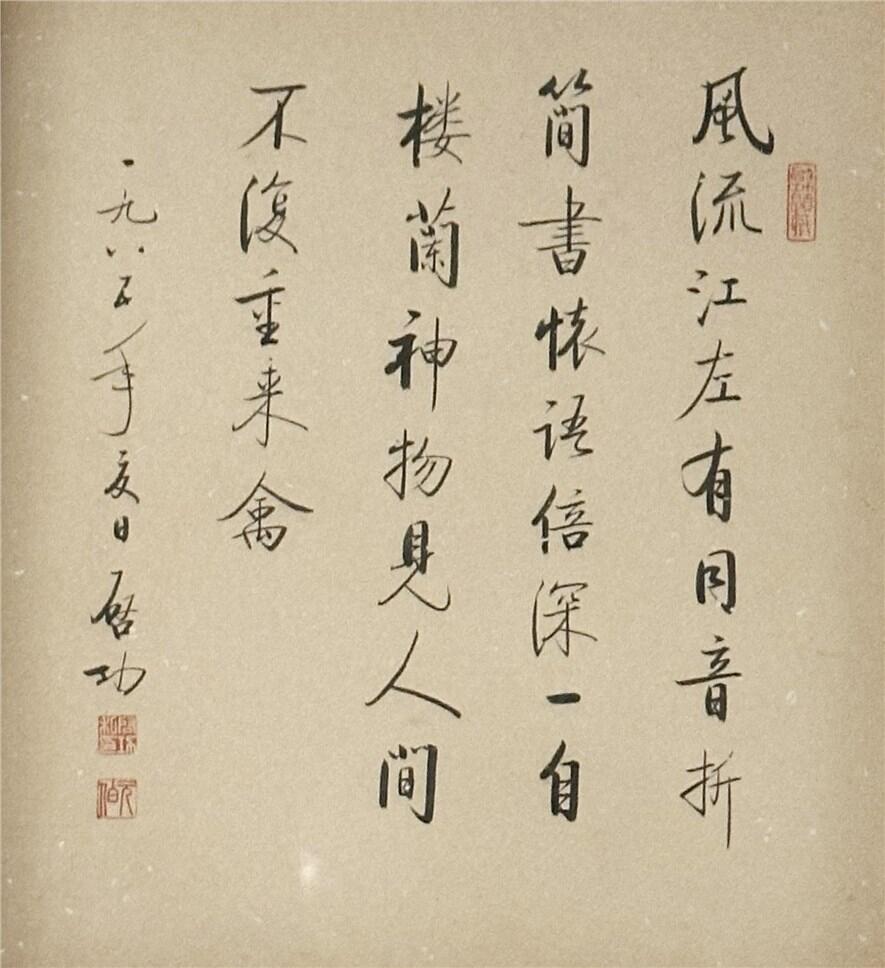 風流江左有同音折
簡書懷語倍深一自
楼蘭神物見人間
不復重来禽
一九八五年夏日启功